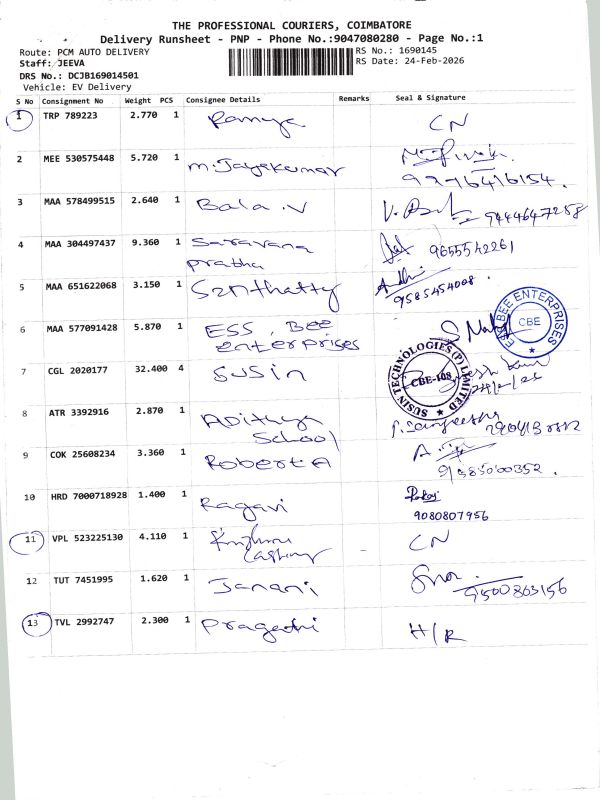 THE PROFESSIONAL COURIERS, COIMBATORE
Delivery Runsheet - PNP - Phone No.:9047080280 - Page No.:1
Route: PCM AUTO DELIVERY
RS No.: 1690145
Staff: JEEVA
RS Date: 24-Feb-2026
DRS No.: DCJB169014501
Vehicle: EV Delivery
S No Consignment No Weight PCS Consignee Details Remarks Seal & Signature
1 TRP 789223 2.770 1 Ramya CN
2 MEE 530575448 5.720 1 M. Jayakumar
3 MAA 578499515 2.640 1 Bala .V 9444647258
4 MAA 304497437 9.360 1 Saravana 9655542261
prabha
5 MAA 651622068 3.150 1 9585454008
6 MAA 577091428 5.870 1 ESS . Bee
enterprises
ESS BEE ENTERPRISES CBE
7 CGL 2020177 32.400 4 SUSin
SUSIN TECHNOLOGIES(P) LIMITED CBE-108
8 ATR 3392916 2.870 1 Adithya
School
9 COK 25608234 3.360 1 Robert A
10 HRD 7000718928 1.400 1 Ragavi
9080807956
11 VPL 523225130 4.110 1 CN
12 TUT 7451995 1.620 1 Janani 9500863156
13 TVL 2992747 2.300 1 Pragathi H/R